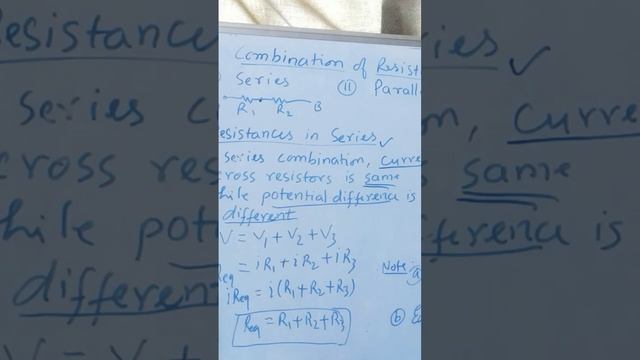 Combination of Resist
Series (ii) Parall
R1 R2 B
esistances in Series ✓
series combination, curre
cross resistors is same
hile potential difference is
different
V = V1 + V2 + V3
= iR1 + iR2 + iR3
iReq = i(R1 + R2 + R3)
Req = R1 + R2 + R3
Note: (a)
(b)